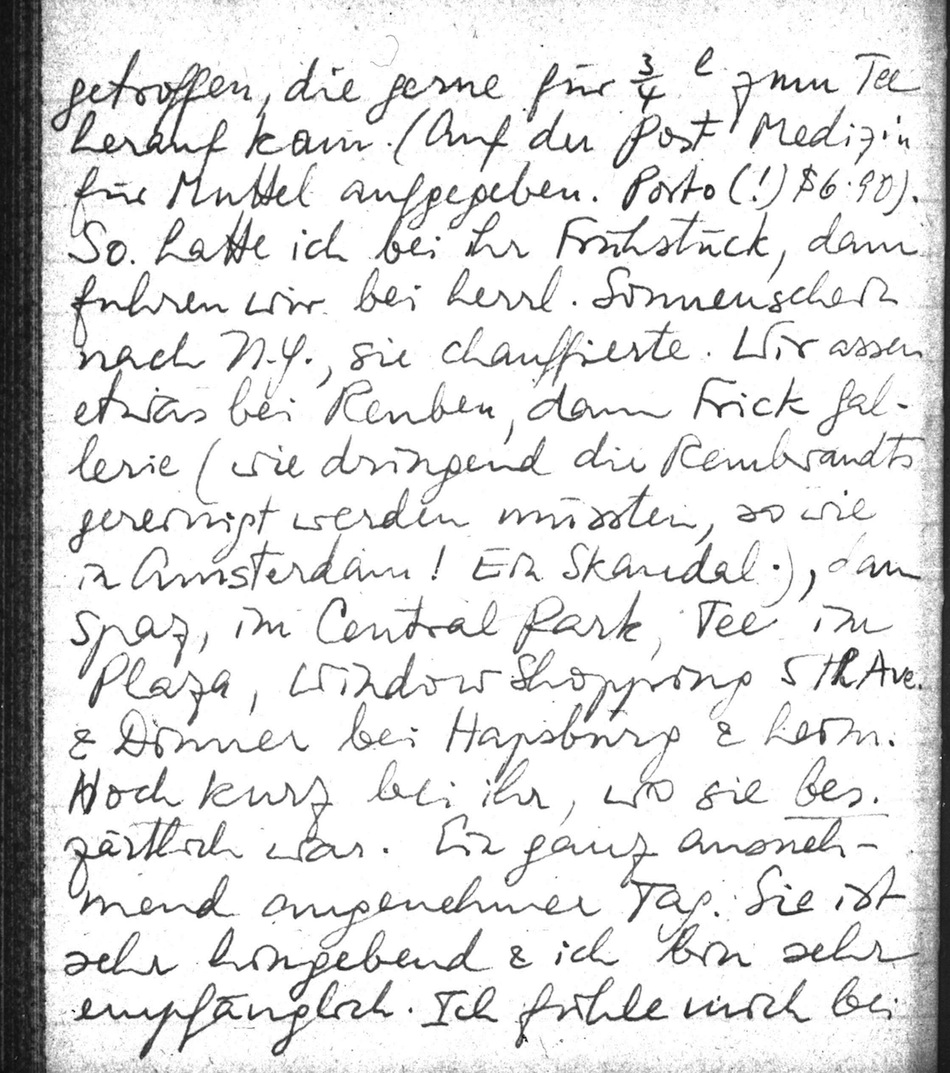 getroffen, die gerne für 3/4 l zum Tee
herauf kam. (Auf der Post Medizin
für Muttel aufgegeben. Porto (!) $6.90).
So. hatte ich bei ihr Frühstück, dann
fuhren wir bei herrl. Sonnenschein
nach N.Y., sie chauffierte. Wir assen
etwas bei Reuben, dann Frick Gal-
lerie (wie dringend die Rembrandts
gereinigt werden müssten, so wie
in Amsterdam! Ein Skandal.), dann
Spaz. im Central Park, Tee im
Plaza, Window Shopping 5th Ave.
& Dinner bei Hapsburg & heim.
Noch kurz bei ihr, wo sie bes.
zärtlich war. Ein ganz ausneh-
mend angenehmer Tag. Sie ist
sehr hingebend & ich bin sehr
empfänglich. Ich fühle mich bei